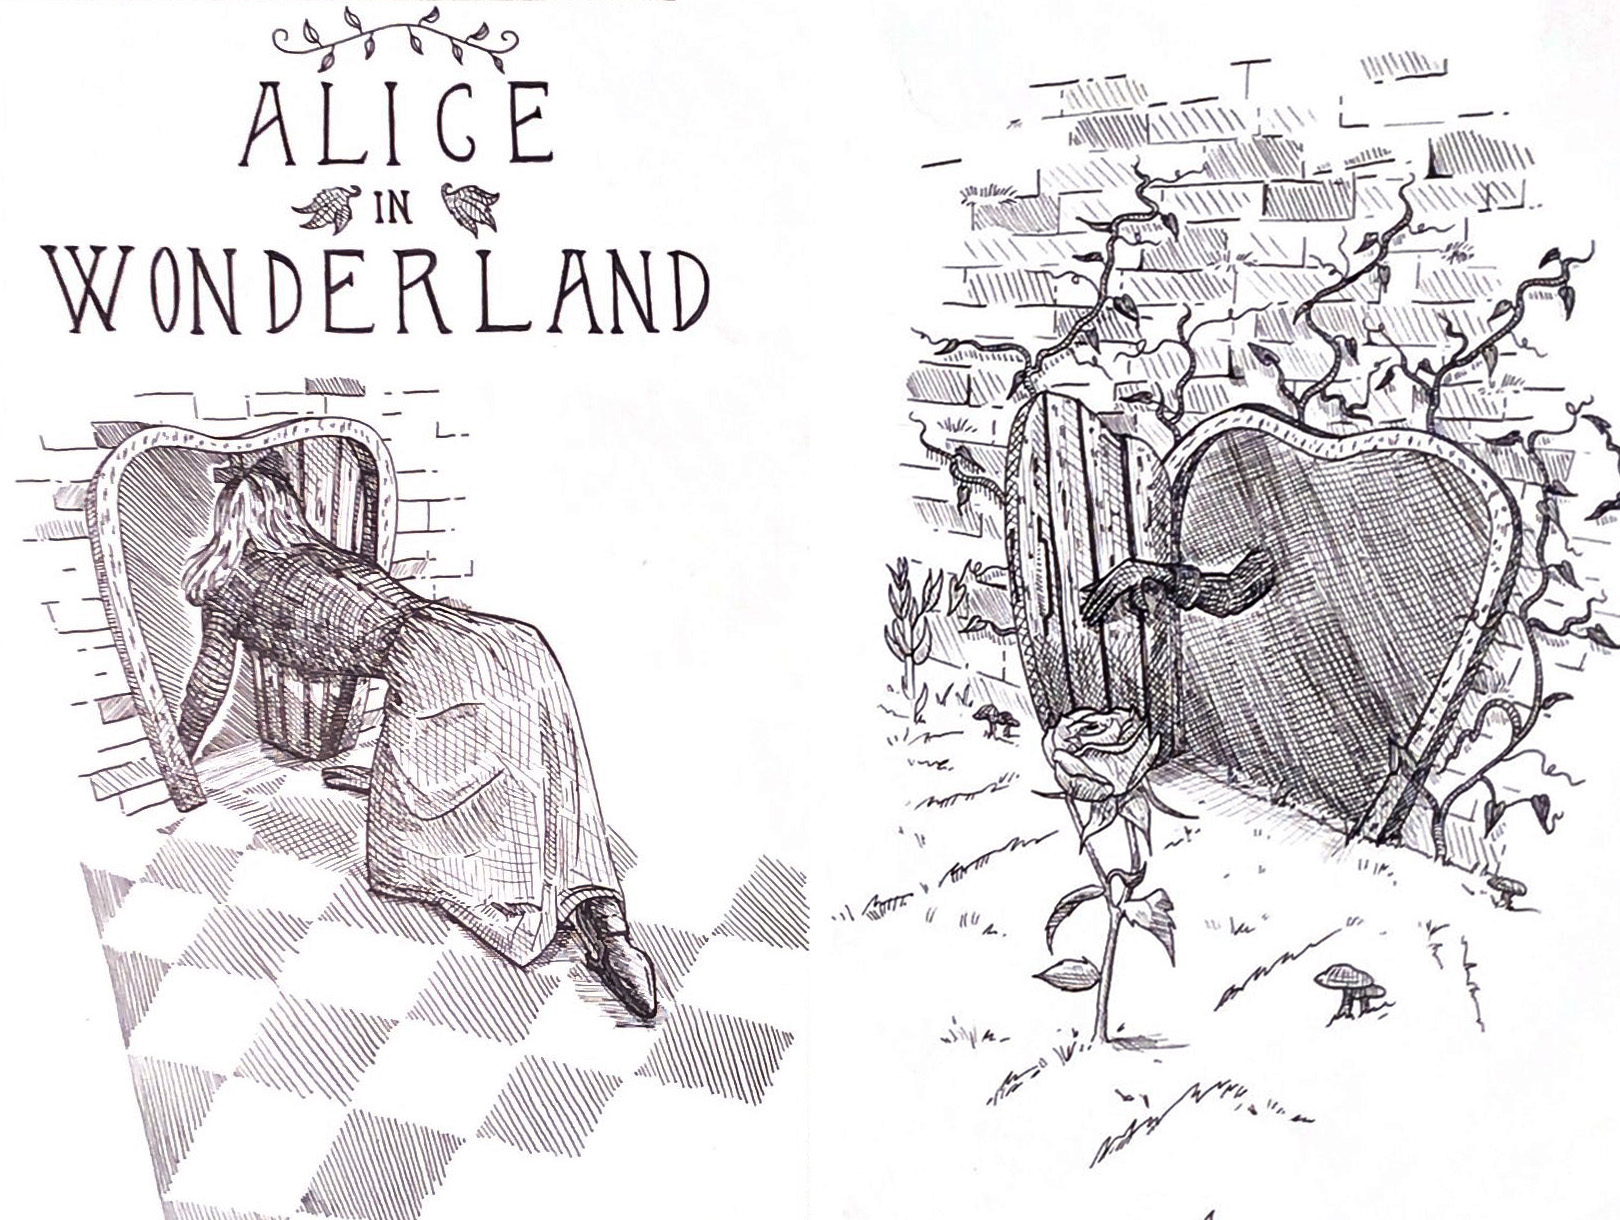 ALICE
IN
WONDERLAND